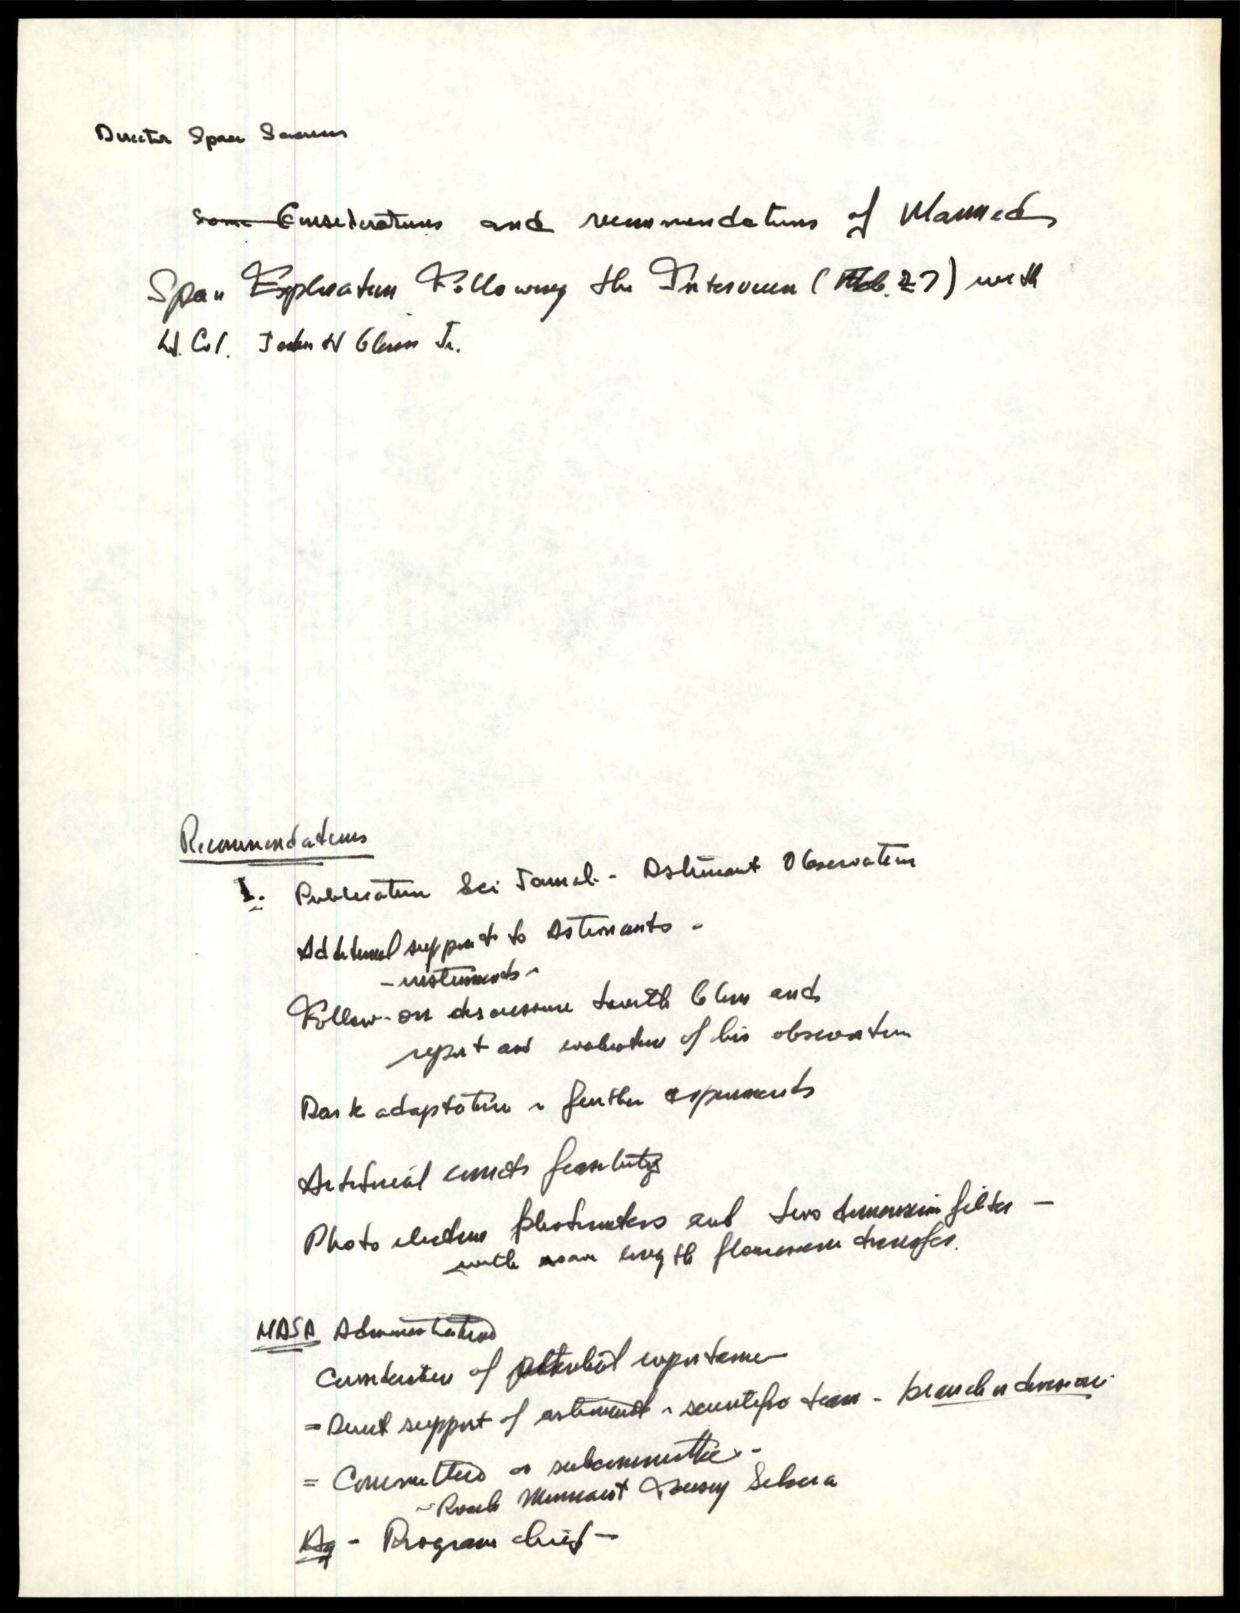 Director Space Sciences
Some Considerations and recommendations of Manned
Space Exploration Following the Interview (Feb. 27) with
Lt. Col. John H Glenn Jr.
Recommendations
1. Publication Sci Journal - Astronaut Observation
Additional support to Astronauts -
- instruments -
Follow-on discussions with Glenn and
report and evaluation of his observation
Dark adaptation - further experiments
Artificial comets feasibility
Photo electric photometers and two dimension filter -
with wave length transfer.
NASA Administration
Consideration of potential importance
= Direct support of astronaut - scientific team - branch or division.
= Committee or subcommittee -
- Roach Minnaert Tousey Sekera
Hq - Program chief -